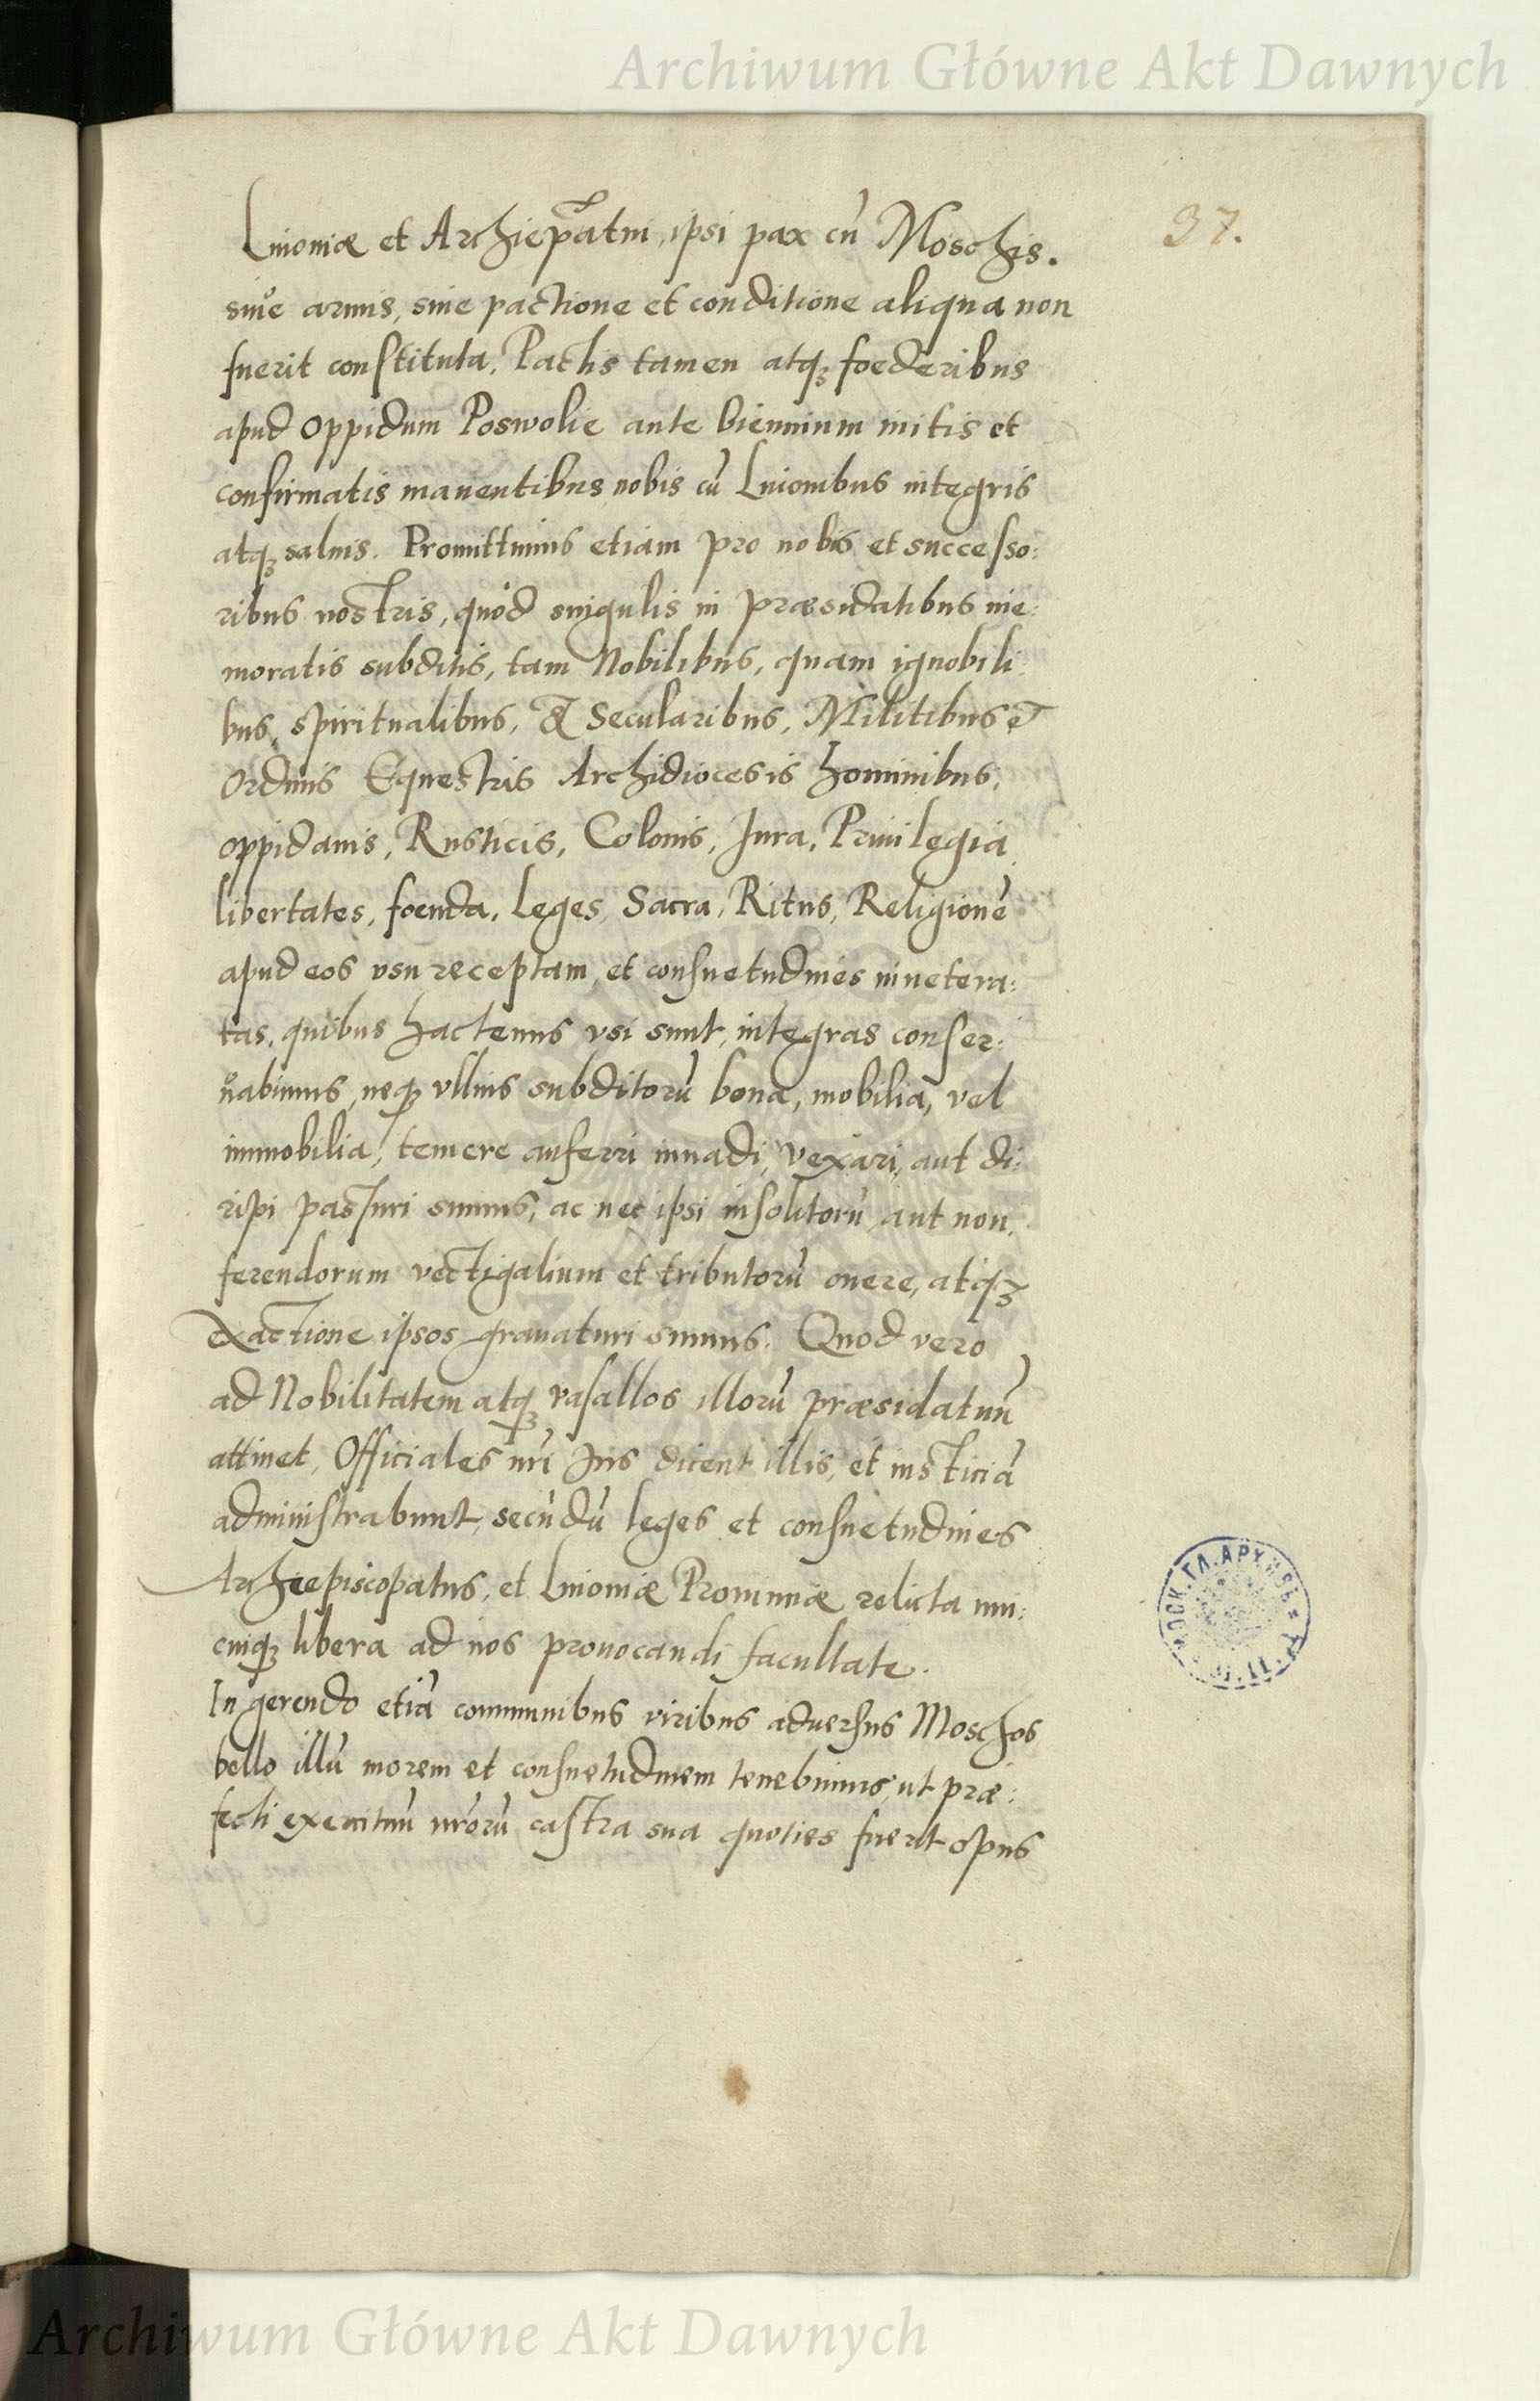 Archiwum Główne Akt Dawnych
37.
Liuoniæ et Archiep̃atui, ipsi pax cũ Moschis.
siue armis, siue pactione et conditione aliqua non
fuerit constituta. Pactis tamen atqꝫ foederibus
apud oppidum Poswolie ante biennium initis et
confirmatis manentibus nobis cũ Liuonibus integris
atqꝫ saluis. Promittimus etiam pro nobis et successo:
ribus nostris, quod singulis in præsidatibus me:
moratis subditis, tam Nobilibus, quam ignobili:
bus, spiritualibus, & Secularibus, Militibus et
Ordinis Equestris Archidiocesis hominibus,
oppidanis, Rusticis, Colonis, Jura, Priuilegia,
libertates, foeuda, leges, Sacra, Ritus, Religionẽ
apud eos vsu receptam, et consuetudines inuetera:
tas, quibus hactenus vsi sunt, integras conser:
uabimus, neqꝫ vllius subditorũ bona, mobilia, vel
immobilia, temere auferri inuadi, vexari, aut di:
ripi passuri sumus, ac nec ipsi insolitorũ aut non
ferendorum vectigalium et tributorũ onere, atqꝫ
exactione ipsos grauaturi sumus. Quod vero
ad Nobilitatem atqꝫ vasallos illorũ præsidatuũ
attinet, Officiales nri̅ Jus dicent illis, et iusticiã
administrabunt, secũdũ leges et consuetudines
Archiepiscopatus, et Liuoniæ Prouinciæ relicta uni:
cuiqꝫ libera ad nos prouocandi facultate.
In gerendo etiã communibus viribus aduersus Moschos
bello illũ morem et consuetudinem tenebimus, ut præ:
fecti exercituũ nr̃orũ castra sua quoties fuerit opus
МОСК. ГЛ. АРХИВЪ
Archiwum Główne Akt Dawnych